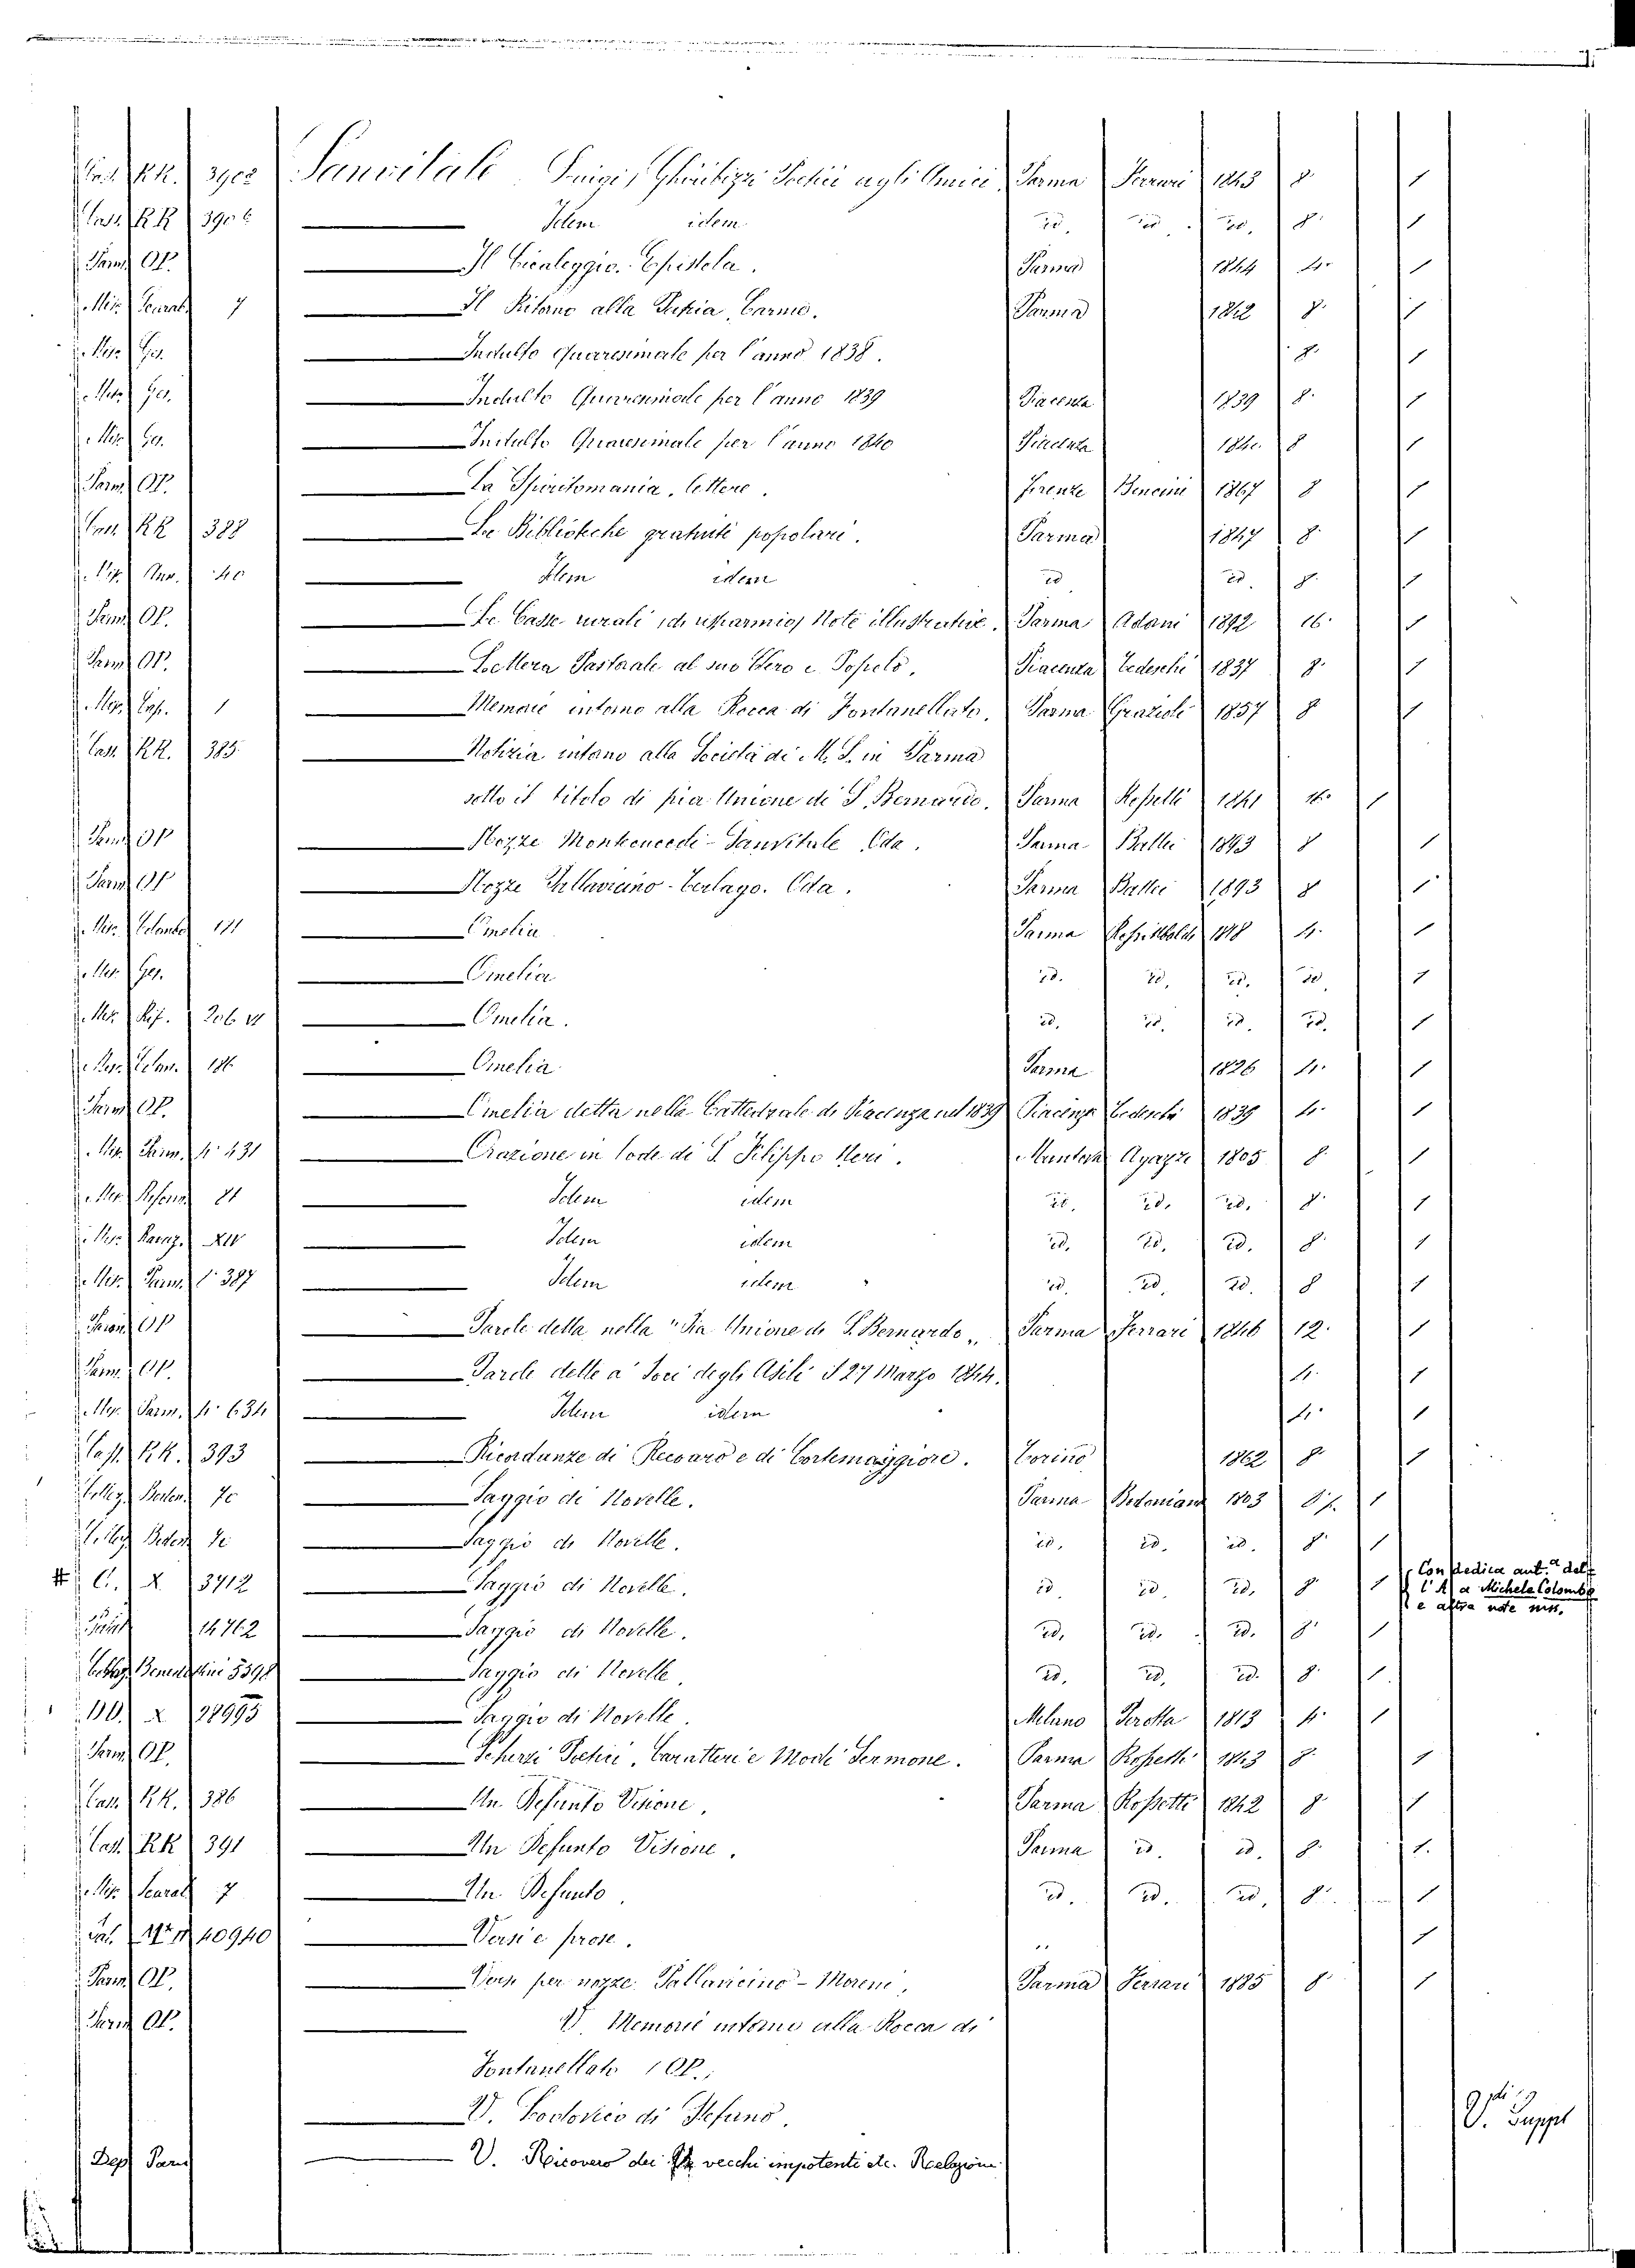 Cass. RR. 3905 Sanvitale Luigi, Ghiribizzi Poetici agli Amici Parma Ferrari 1843 8° 1
Cass. RR 3906 Idem idem id. id. id. 8° 1
Parm. OP. Il Cicaleggio. Epistola. Parma 1844 4° 1
Misc. Scarab. 7 Il Ritorno alla Patria, Carme. Parma 1842 8° 1
Misc. Ges. Indulto Quaresimale per l'anno 1838. 8° 1
Misc. Ges. Indulto Quaresimale per l'anno 1839 Piacenza 1839 8° 1
Misc. Ges. Indulto Quaresimale per l'anno 1840 Piacenza 1840 8 1
Parm. OP. La Spiritomania, lettere. Firenze Bencini 1867 8 1
Cass. RR 388 Le Biblioteche gratuite popolari. Parma 1847 8° 1
40 Idem idem id id. 8° 1
Parm. OP. Le Casse rurali di risparmio, Note illustrative. Parma Adani 1892 16° 1
Parm. OP. Lettera Pastorale al suo Clero e Popolo. Piacenza Tedeschi 1837 8° 1
Misc. Cap. 1 Memorie intorno alla Rocca di Fontanellato. Parma Grazioli 1857 8 1
Cass. RR. 385 Notizia intorno alla Società di M. S. in Parma
sotto il titolo di pia Unione di S. Bernardo. Parma Rossetti 1841 1
Parm. OP Nozze Montecuccoli-Sanvitale Oda. Parma Battei 1893 8 1
Parm. OP Nozze Pallavicino-Terlago. Oda. Parma Battei 1893 8 1
Misc. Colombo 111 Omelia Parma 1818 4° 1
Misc. Ges. Omelia id. id. id. id. 1
Misc. 206 Omelia. id. id. id. id. 1
Misc. 186 Omelia Parma 1826 4° 1
Parm. OP. Omelia detta nella Cattedrale di Piacenza nel 1839 Piacenza Tedeschi 1839 4° 1
Misc. Parm. 4° 431 Orazione in lode di S. Filippo Neri. Mantova Agazzi 1805 8° 1
Misc. 21 Idem idem id. id. id. 8° 1
Misc. XIV Idem idem id. id. id. 8° 1
Misc. Parm. 8° 387 Idem idem id. id. id. 8 1
Parm. OP Parole dette nella "Pia Unione di S. Bernardo„ Parma Ferrari 1846 12° 1
Parm. OP. Parole dette a' Soci degli Asili il 27 Marzo 1844. 4° 1
Misc. Parm. 4° 634 Idem idem 4° 1
Cass. RR. 393 Ricordanze di Recoaro e di Cortemaggiore. Torino 1862 8° 1
Colleg. Bodon. 70 Saggio di Novelle. Parma Bodoniana 1803 8° f. 1
Colleg. Bodon. Saggio di Novelle. id. id. id. 8° 1
# C. X. 3712 Saggio di Novelle. id id id. 8° 1 Con dedica aut.a dell'A. a Michele Colombo e altra note mss.
14762 Saggio di Novelle. id. id. id. 8° 1
Benedettini 5398 Saggio di Novelle id. id. id. 8° 1
DD. X 28995 Saggio di Novelle. Milano Pirotta 1813 4° 1
Parm. OP. Scherzi Poetici, Caratteri e Modi Sermone. Parma Rossetti 1843 8° 1
Cass. RR. 386 Un Defunto Visione. Parma Rossetti 1842 8° 1
Cass. RR 391 Un Defunto Visione. Parma id. id. 8° 1.
Misc. Scarab. 7 Un Defunto. id. id. id. 8° 1
40940 Versi e prose. 1
Parm. OP. Versi per nozze Pallavicino-Moreni, Parma Ferrari 1885 8° 1
Parm. OP. V. Memorie intorno alla Rocca di
Fontanellato (OP.)
V. Lodovico di Stefano. V. Suppl
Dep. Parm V. Ricovero dei vecchi impotenti etc. Relazione